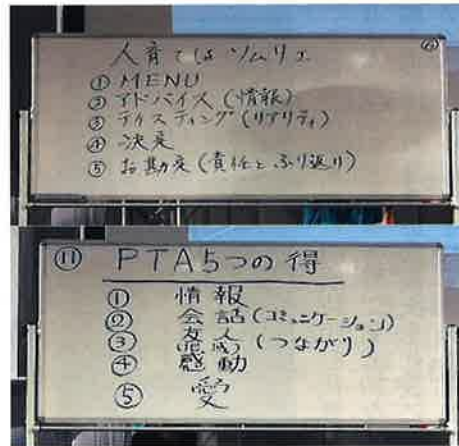 人育てはソムリエ
① MENU
② アドバイス (情報)
③ テイスティング (リアリティ)
④ 決定
⑤ お勘定 (責任とふり返り)
⑪ PTA5つの得
① 情報
② 会話 (コミュニケーション)
③ 友人 (つながり)
(地域)
④ 感動
⑤ 愛